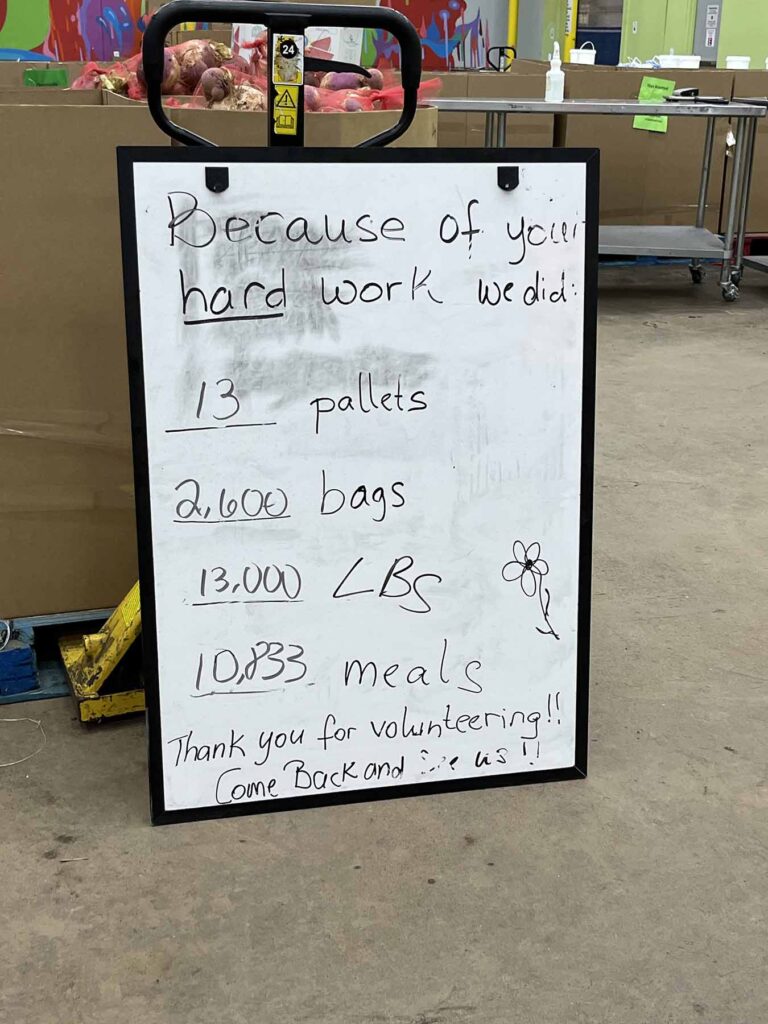 24
Because of your
hard work we did:
13 pallets
2,600 bags
13,000 LBS
10,833 meals
Thank you for volunteering!!
Come Back and see us!!